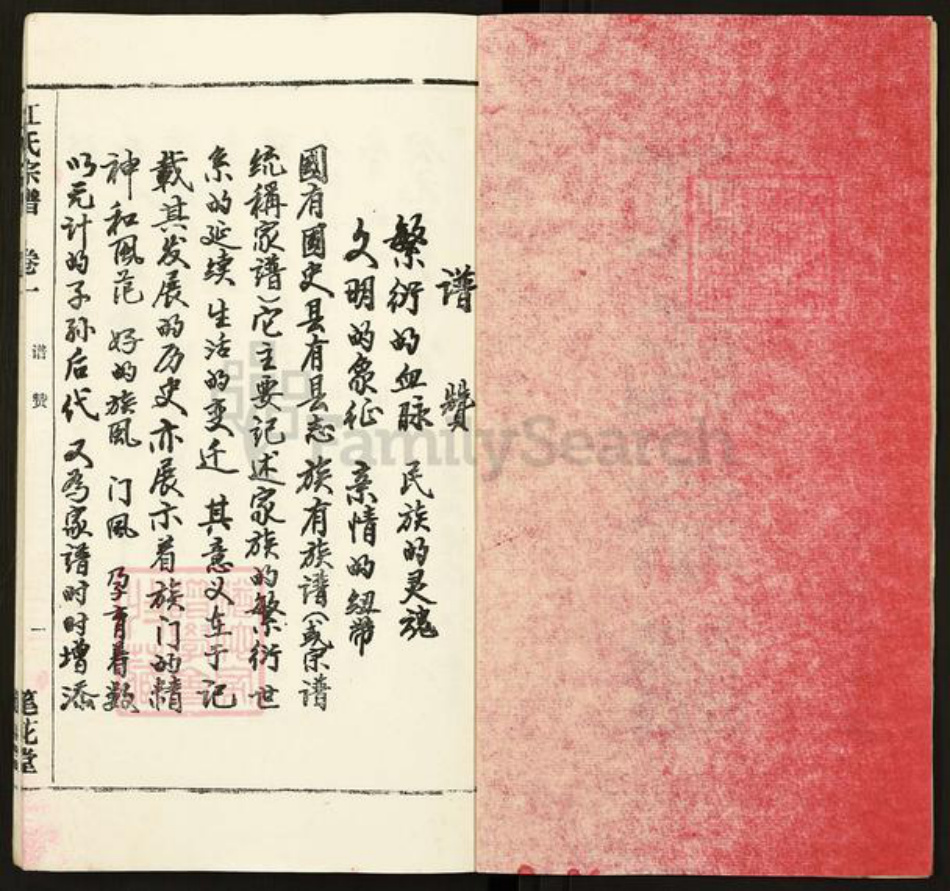 谱覽
繁衍的血脉 民族的灵魂
文明的象征 亲情的纽带
國有國史县有县志 族有族谱(或宗谱
统稱家谱)它主要记述家族的繁衍世
系的延续 生活的变迁 其意义在于记
載其发展的历史亦展示着族门的精
神和风范 好的族风 门风 孕育着数
以元计的子孙后代 又为家谱时时增添
江氏宗谱 卷一 谱赞 一 笔花堂
FamilySearch